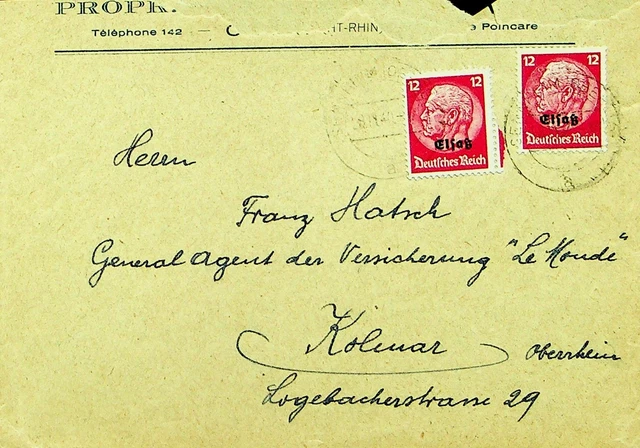 PROPR.
Téléphone 142 — T-RHIN, Poincare
12 12
12 12
Elsaß
Deutsches Reich
Elsaß
Deutsches Reich
Herrn
Franz Hatsch
General Agent der Versicherung "Le Monde"
Kolmar Oberrhein
Logelbacherstrasse 29